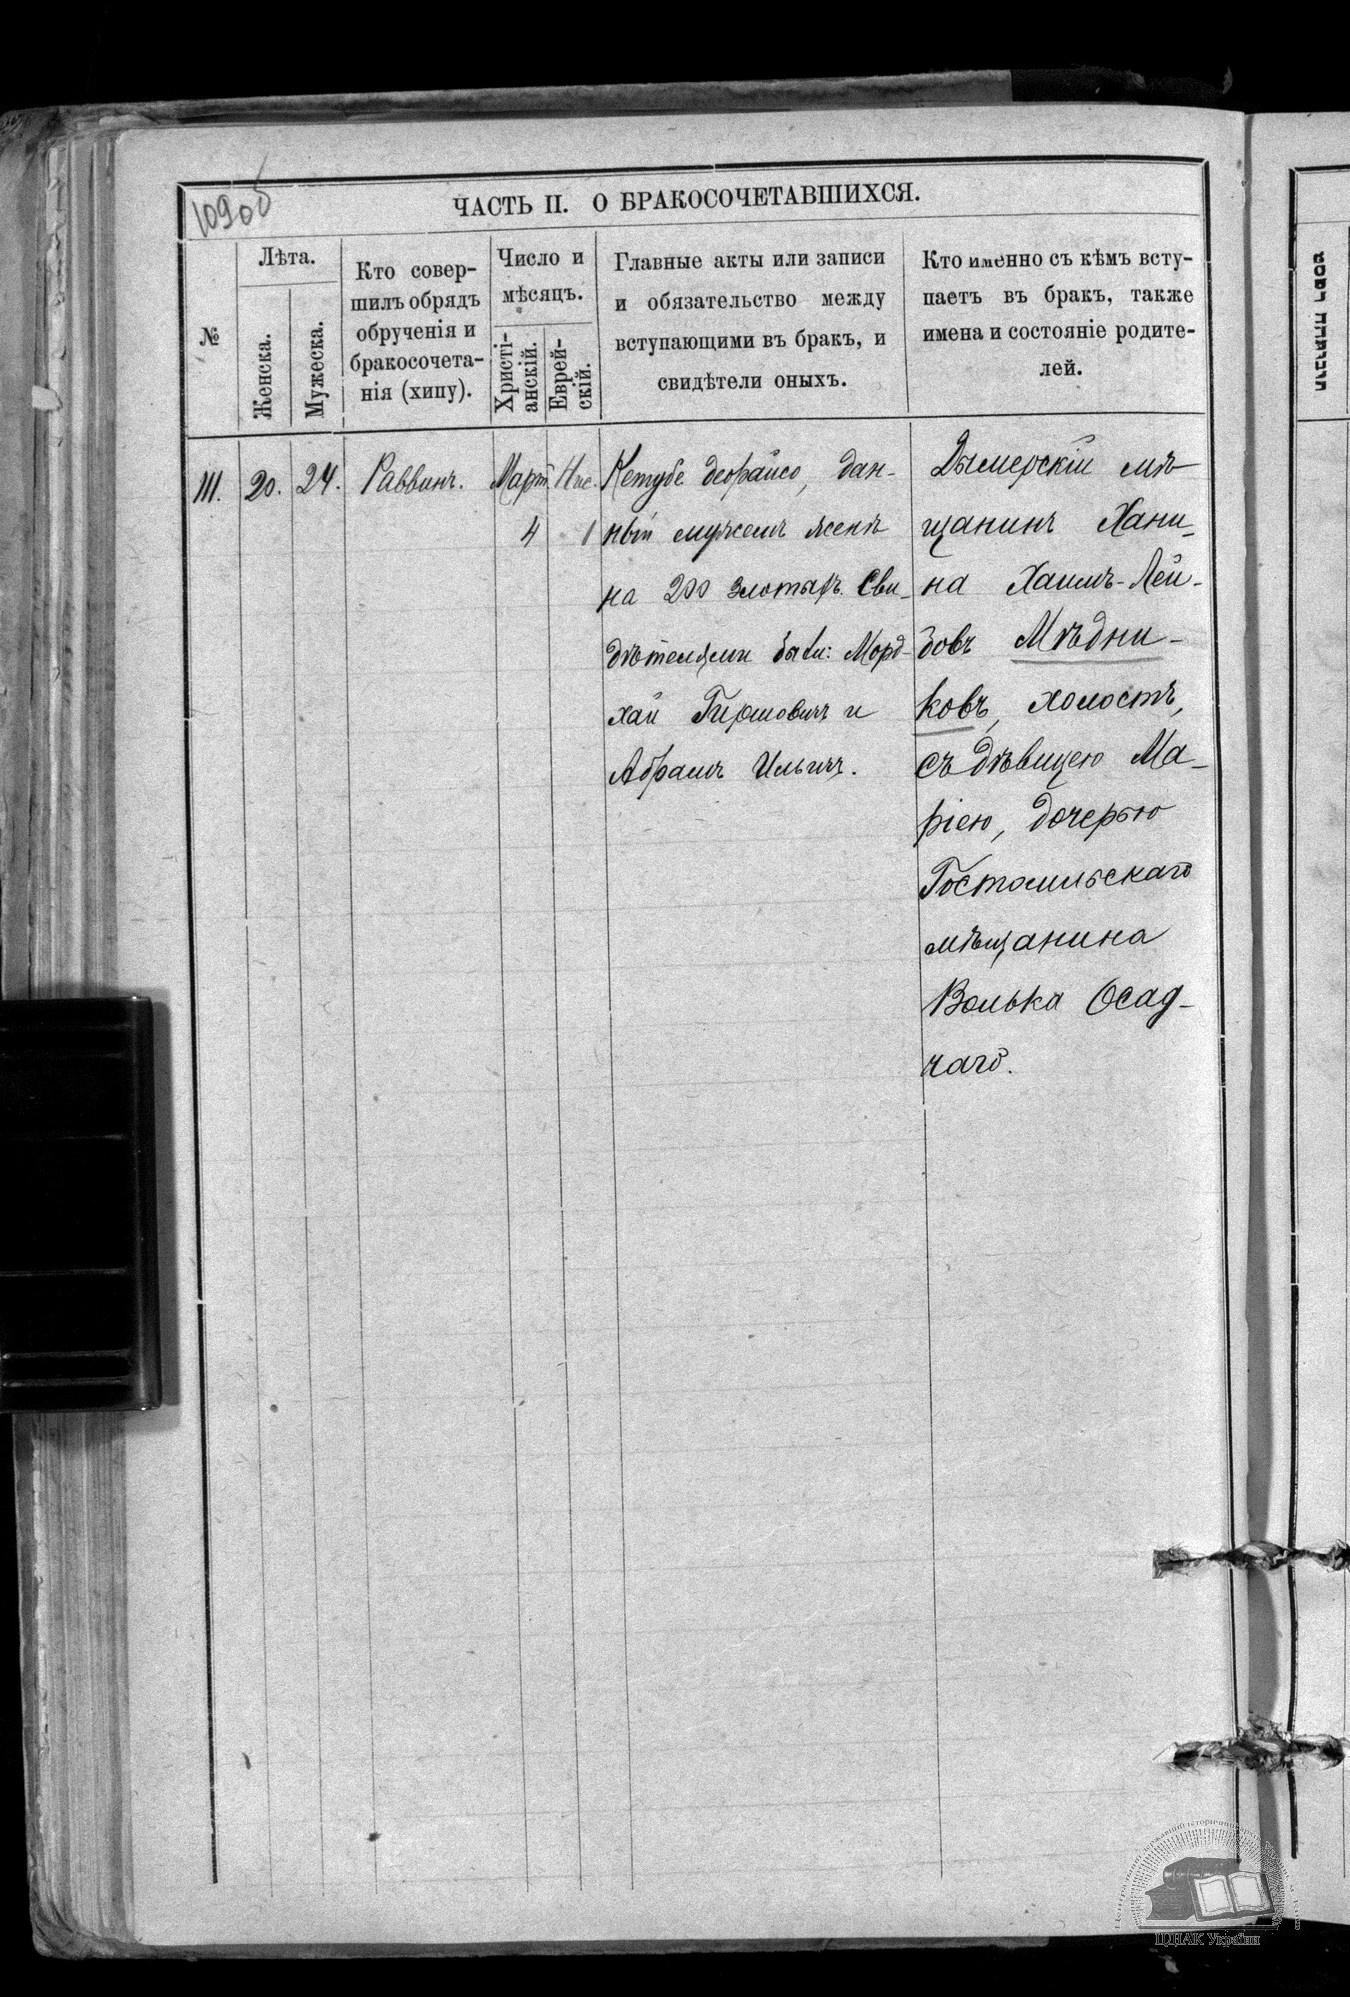 109об
ЧАСТЬ II. О БРАКОСОЧЕТАВШИХСЯ.
№
Лѣта.
Женска.
Мужеска.
Кто совер-
шилъ обрядъ
обрученія и
бракосочета-
нія (хипу).
Число и
мѣсяцъ.
Христі-
анскій.
Еврей-
скій.
Главные акты или записи
и обязательство между
вступающими въ бракъ, и
свидѣтели оныхъ.
Кто именно съ кѣмъ всту-
паетъ въ бракъ, также
имена и состояніе родите-
лей.
III.
20.
24.
Раввинъ.
Март.
4
Нис.
1
Кетубе деорайсо, дан-
ный мужемъ женѣ
на 200 злотыхъ. Сви-
дѣтелями были:Морд-
хай Гиршовичъ и
Абрамъ Ильичъ.
Дымерскій мѣ-
щанинъ Хани-
на Хаимъ-Лей-
бовъ Мѣдни-
ковъ, холостъ,
съ дѣвицею Ма-
ріею, дочерью
Гостомльскаго
мѣщанина
Волька Осад-
чаго.
ЦДІАК України